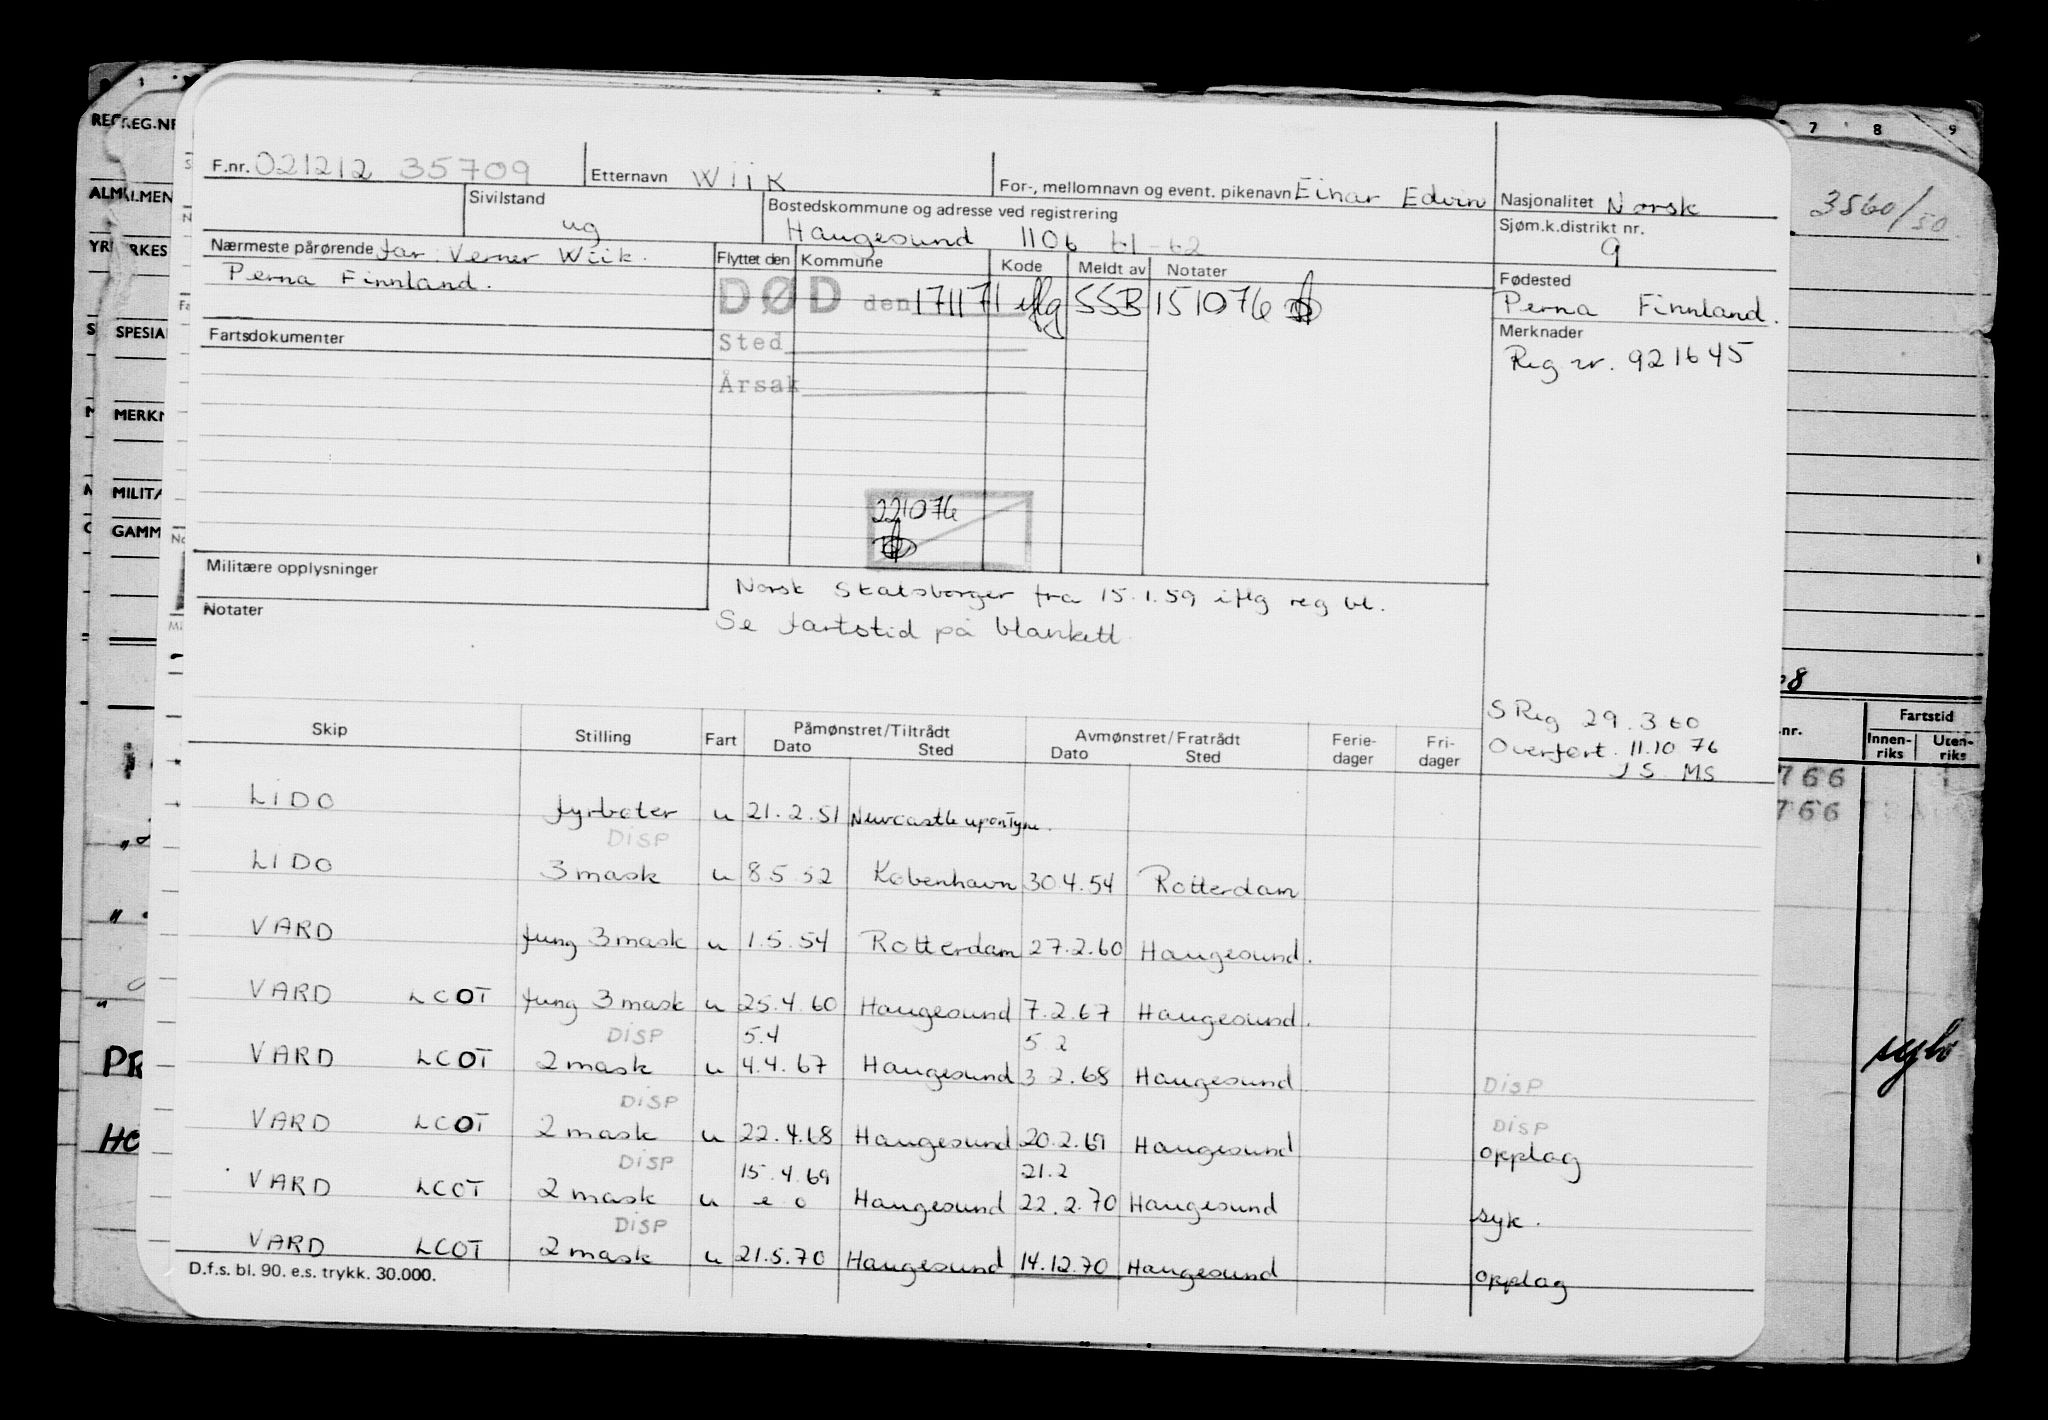 F.nr. 021212 35709 Etternavn Wiik For-, mellomnavn og event. pikenavn Einar Edvin Nasjonalitet Norsk
Sivilstand ug Bostedskommune og adresse ved registrering Haugesund 1106 61-62 Sjøm.k.distrikt nr. 9
Nærmeste pårørende far: Verner Wiik. Flyttet den Kommune Kode Meldt av Notater Fødested
Perna Finnland. DØD den 171171 iflg SSB 151076 Perna Finnland.
Fartsdokumenter Sted Merknader
Årsak Reg nr. 921645
221076
Militære opplysninger
Norsk Statsborger fra 15.1.59 iflg reg bl.
Notater
Se fartstid på blankett
S Reg 29.3 60
Overført. 11.10 76
J S. MS
Skip Stilling Fart Påmønstret/Tiltrådt Avmønstret/Fratrådt Ferie-dager Fri-dager
Dato Sted Dato Sted
LIDO fyrbøter u 21.2.51 Newcastle upon Tyne.
DISP
LIDO 3 mask u 8.5 52 København 30.4.54 Rotterdam
VARD fung 3 mask u 1.5.54 Rotterdam 27.2.60 Haugesund.
VARD LCOT fung 3 mask u 25.4.60 Haugesund 7.2.67 Haugesund.
DISP 5.4 5 2
VARD LCOT 2 mask u 4.4.67 Haugesund 3 2.68 Haugesund DISP
DISP DISP
VARD LCOT 2 mask u 22.4.68 Haugesund 20.2.69 Haugesund opplag
DISP 15.4.69 21.2
VARD LCOT 2 mask u e o Haugesund 22.2.70 Haugesund syk.
DISP
VARD LCOT 2 mask u 21.5.70 Haugesund 14.12.70 Haugesund opplag
D.f.s. bl. 90. e.s. trykk. 30.000.
REG.NR
YRKES
SPESIA
MERKN
MILITÆ
GAMM
7 8 9
3560/50
Fartstid
.nr. Innen-riks Uten-riks
766
766